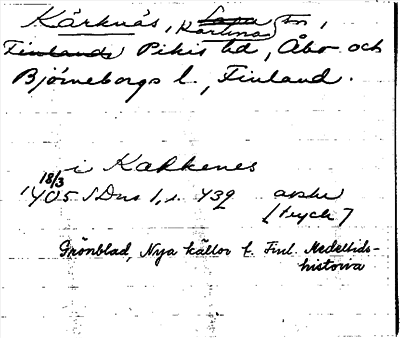 Kärknäs, Karlina sn,
Finlands Pikis hd, Åbo och
Björneborgs l., Finland.
i Kakkenes
18/3
1405 SDns 1, s. 439 avskr
[tryck]
Grönblad, Nya källor t. Finl. Medeltids-
historia